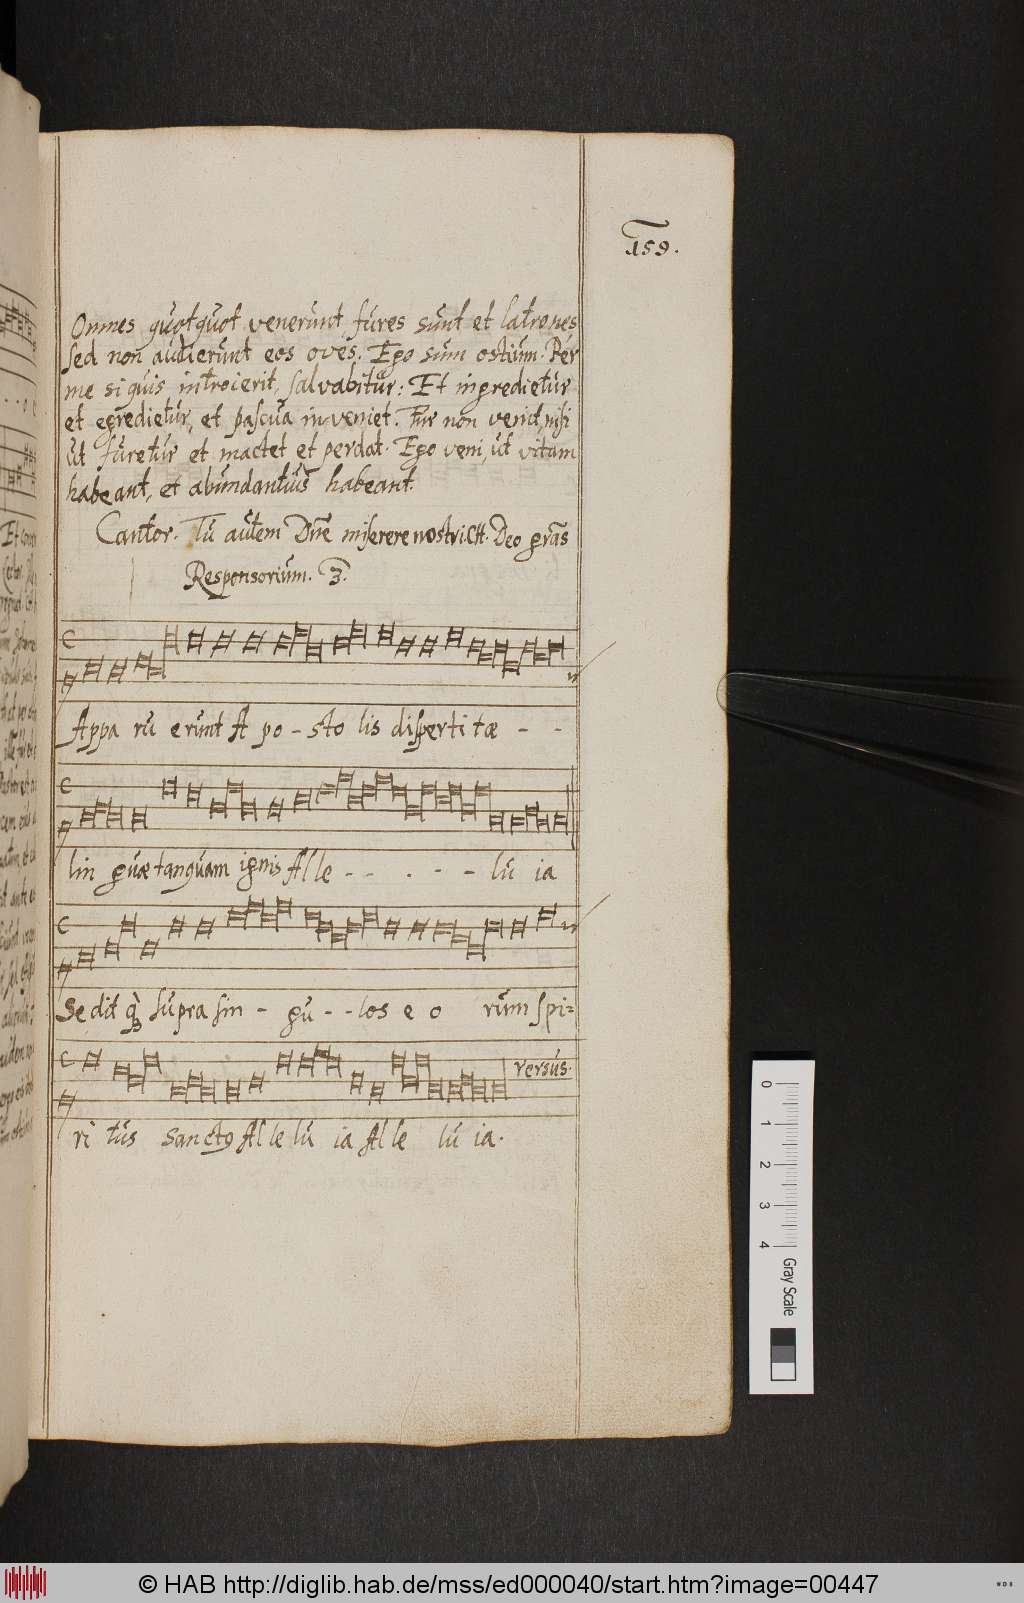 159.
Omnes quotquot venerunt fures sunt et latrones
sed non audierunt eos oves. Ego sum ostium. Per
me si quis introierit, salvabitur: Et ingredietur
et egredietur, et pascua inveniet. Fur non venit, nisi
ut furetur et mactet et perdat. Ego veni, ut vitam
habeant, et abundantius habeant.
Cantor. Tu autem Dne miserere nostri. CH. Deo gras
Responsorium. 3.
Appa ru erunt A po - sto lis disperti tæ - -
lin guæ tanquam ignis Al le - - . - - lu ia
Se dit q3 supra sin - gu - - los e o rum spi=
versus.
ri tus Sancto Al le lu ia Al le lu ia.
0 1 2 3 4 Gray Scale
© HAB http://diglib.hab.de/mss/ed000040/start.htm?image=00447